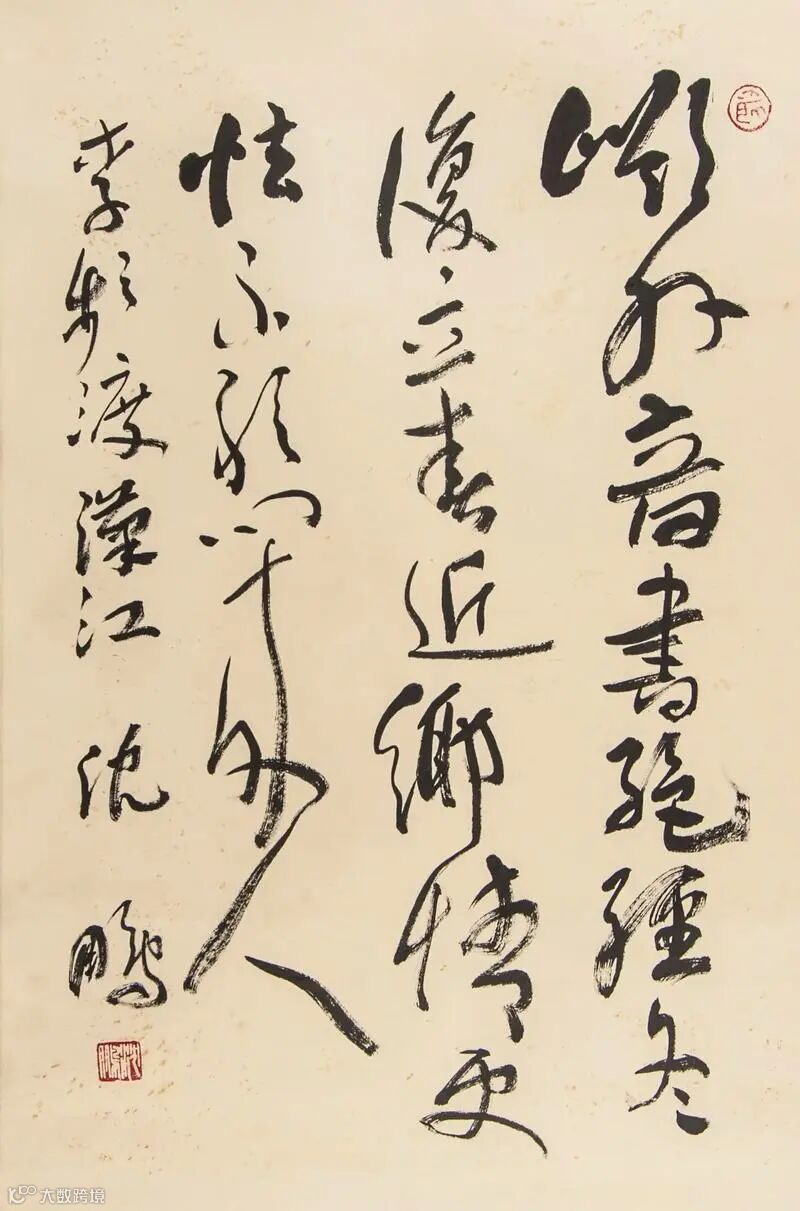 嶺外音書絕經冬
復立春近鄉情更
怯不敢問來人
李頻渡漢江 沈鵬
大数跨境